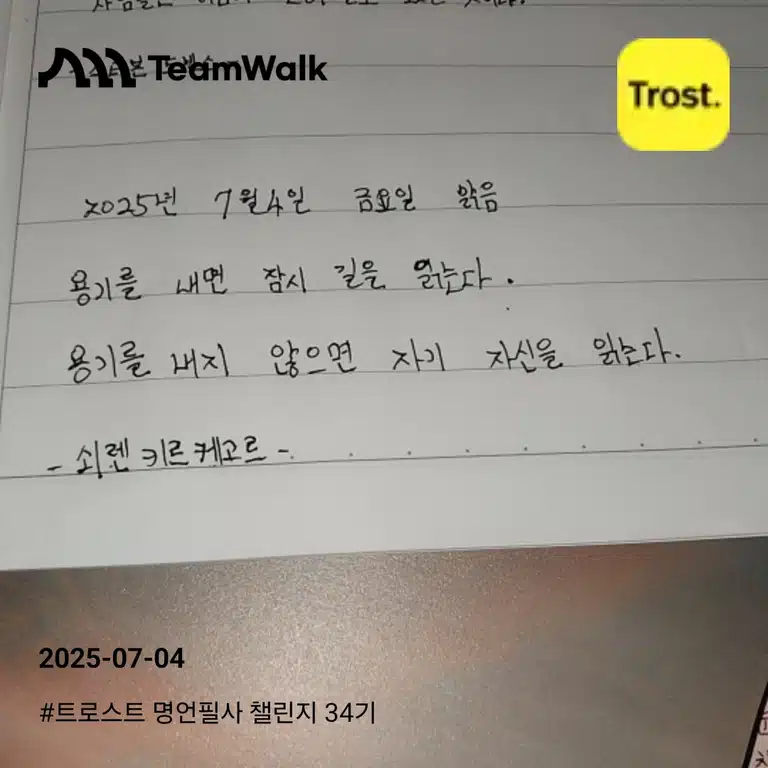 TeamWalk
Trost.
2025년 7월4일 금요일 맑음
용기를 내면 잠시 길을 잃는다.
용기를 내지 않으면 자기 자신을 잃는다.
- 쇠렌 키르케고르 -
2025-07-04
#트로스트 명언필사 챌린지 34기